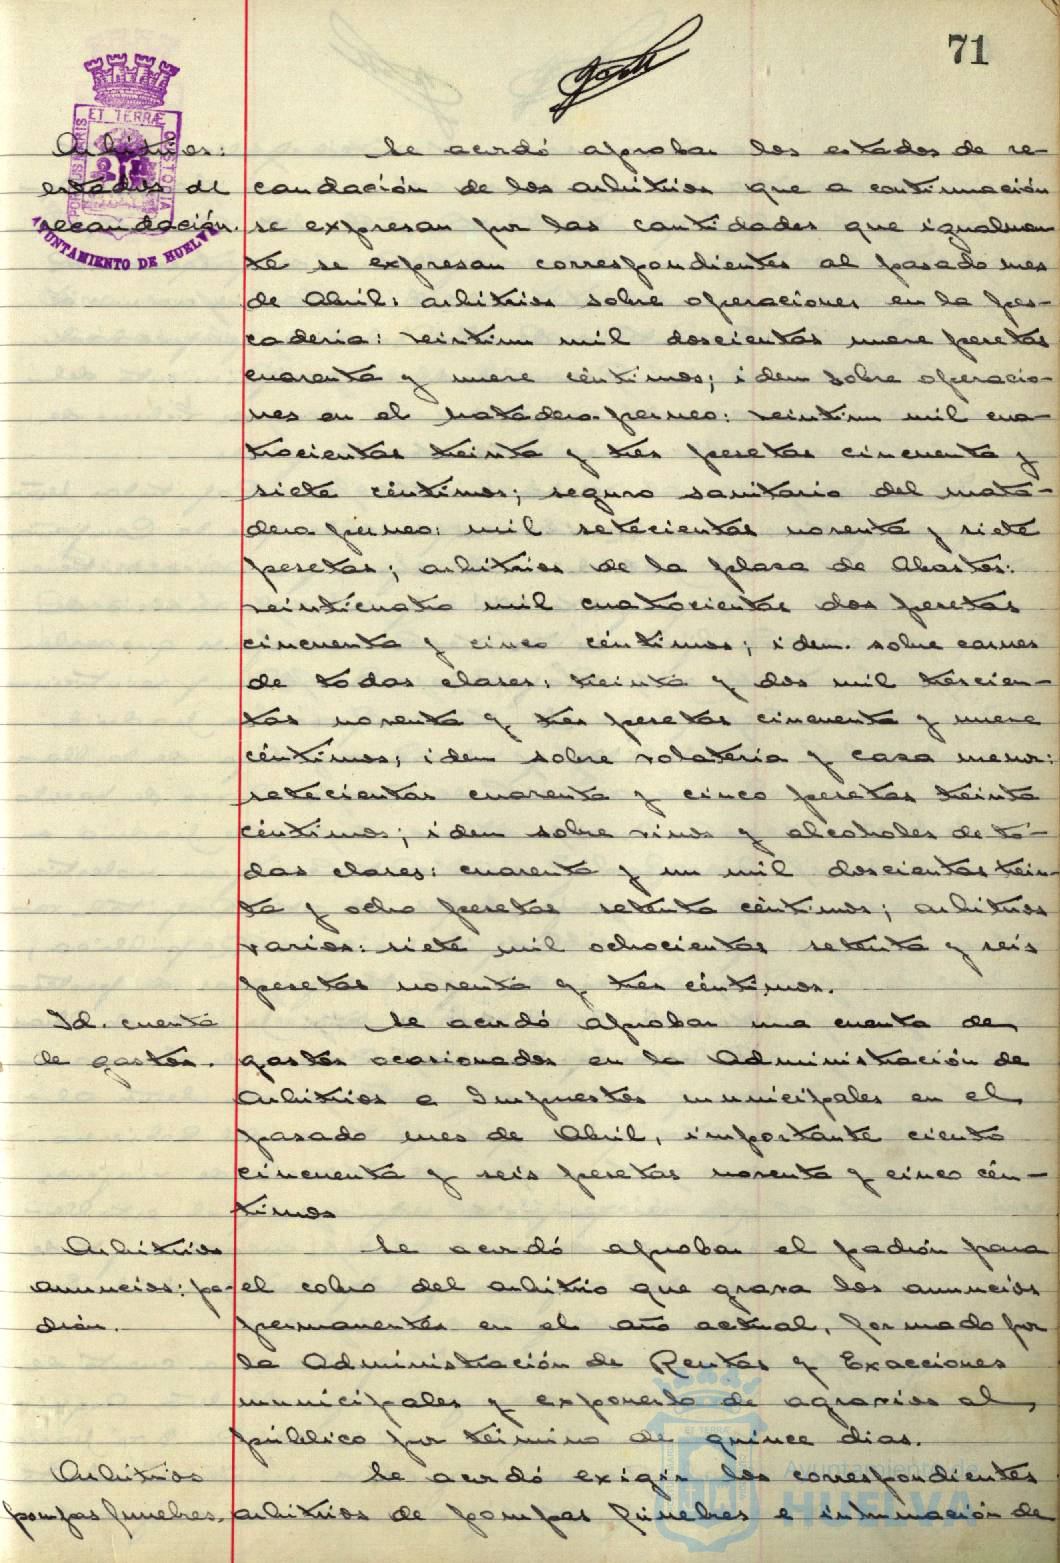 71
ET TERRÆ
AYUNTAMIENTO DE HUELVA
Arbitrios:
estados de
recaudación.
Se acordó aprobar los estados de re-
caudación de los arbitrios que a continuación
se expresan por las cantidades que igualmen
te se expresan correspondientes al pasado mes
de Abril: arbitrios sobre operaciones en la pes-
caderia: veintiun mil doscientas nueve pesetas
cuarenta y nueve céntimos; idem sobre operacio-
nes en el matadero perneo: veintiun mil cua
trocientas treinta y tres pesetas cincuenta y
siete céntimos; seguro sanitario del mata-
dero perneo: mil setecientas noventa y siete
pesetas; arbitrios de la plaza de Abastos:
veinticuatro mil cuatrocientas dos pesetas
cincuenta y cinco céntimos; idem. sobre carnes
de todas clases: treinta y dos mil trescien-
tas noventa y tres pesetas cincuenta y nueve
céntimos; idem sobre volateria y caza menor:
setecientas cuarenta y cinco pesetas treinta
céntimos; idem sobre vinos y alcoholes de to-
das clases: cuarenta y un mil doscientas trein-
ta y ocho pesetas setenta céntimos; arbitrios
varios: siete mil ochocientas setenta y seis
pesetas noventa y tres céntimos.
Id. cuenta
de gastos.
Se acordó aprobar una cuenta de
gastos ocasionados en la Administración de
Arbitrios e Impuestos municipales en el
pasado mes de Abril, importante ciento
cincuenta y seis pesetas noventa y cinco cén-
timos
Arbitrios
anuncios: pa-
drón.
Se acordó aprobar el padrón para
el cobro del arbitrio que grava los anuncios
permanentes en el año actual, formado por
la Administración de Rentas y Exacciones
municipales y exponerlo de agravios al
público por término de quince dias.
Arbitrios
pompas funebres.
Se acordó exigir los correspondientes
arbitrios de pompas fúnebres e inhumación de
Ayuntamiento de
HUELVA